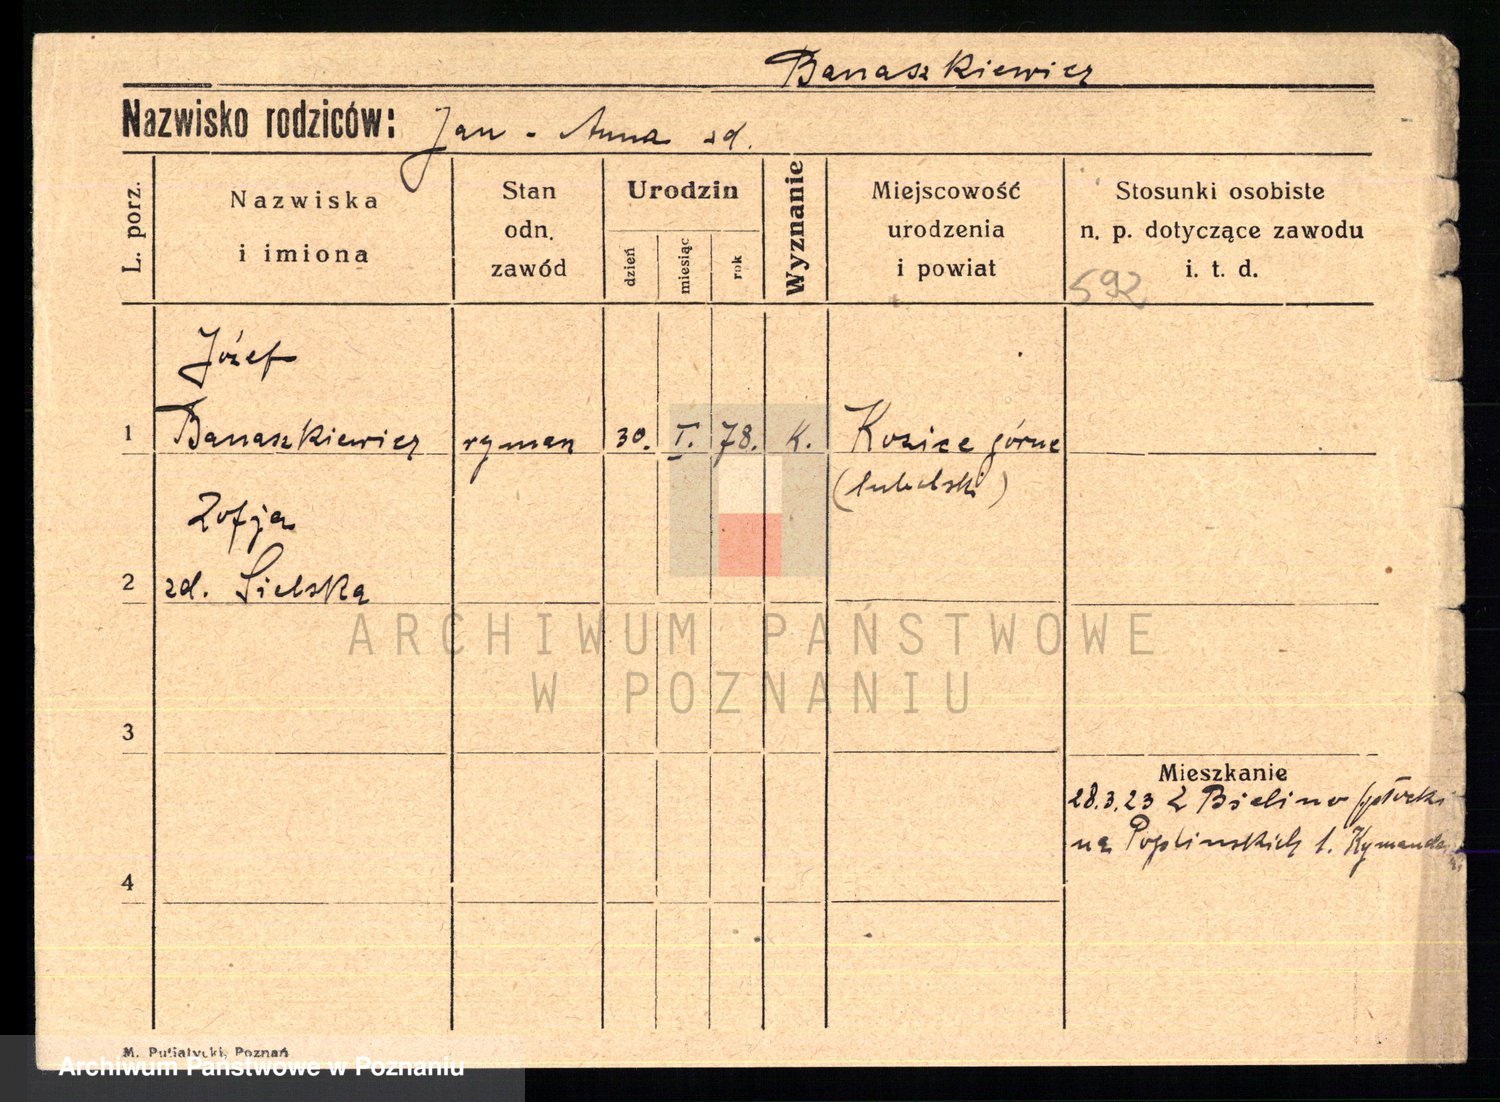 Banaszkiewicz
Nazwisko rodziców: Jan - Anna zd.
L. porz.
Nazwiska
i imiona
Stan
odn.
zawód
Urodzin
dzień
miesiąc
rok
Wyznanie
Miejscowość
urodzenia
i powiat
Stosunki osobiste
n. p. dotyczące zawodu
i. t. d.
592
Józef
1 Banaszkiewicz ryman 30. I. 78. K. Kozice górne
(lubelski)
Zofja
2 zd. Sielska
ARCHIWUM PAŃSTWOWE
W POZNANIU
3
Mieszkanie
28.3.23 z Bielino
na
4
M. Putiatycki, Poznań
Archiwum Państwowe w Poznaniu